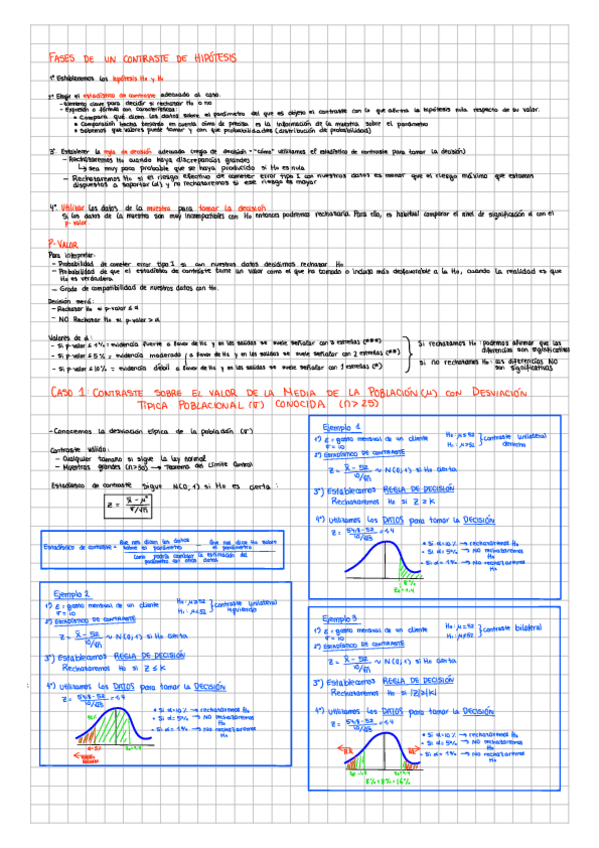 FASES DE UN CONTRASTE DE HIPÓTESIS
1º Establecemos las hipótesis H₀ y H₁
2º Elegir el estadístico de contraste adecuado al caso.
- Elemento clave para decidir si rechazar H₀ o no
- Expresión o fórmula con características:
• Compara qué dicen los datos sobre el parámetro del que es objeto el contraste con lo que afirma la hipótesis nula respecto de su valor.
• Comparación hecha teniendo en cuenta cómo de precisa es la información de la muestra sobre el parámetro
• Sabemos qué valores puede tomar y con qué probabilidades (distribución de probabilidad)
3º. Establecer la regla de decisión adecuada (regla de decisión = "cómo" utilizamos el estadístico de contraste para tomar la decisión)
- Rechazaremos H₀ cuando haya discrepancias grandes
↳ sea muy poco probable que se haya producido si H₀ es nula
- Rechazaremos H₀ si el riesgo efectivo de cometer error tipo I con nuestros datos es menor que el riesgo máximo que estamos
dispuestos a soportar (α) y no rechazaremos si ese riesgo es mayor
4º. Utilizar los datos de la muestra para tomar la decisión
Si los datos de la muestra son muy incompatibles con H₀ entonces podremos rechazarla. Para ello, es habitual comparar el nivel de significación α con el
p-valor.
P-VALOR
Para interpretar:
- Probabilidad de cometer error tipo I si con nuestros datos decidimos rechazar H₀
- Probabilidad de que el estadístico de contraste tome un valor como el que ha tomado o incluso más desfavorable a la H₀, cuando la realidad es que
H₀ es verdadera.
- Grado de compatibilidad de nuestros datos con H₀.
Decisión será:
- Rechazar H₀ si p-valor ≤ α
- NO Rechazar H₀ si p-valor > α
Valores de α:
- Si p-valor ≤ 1% : evidencia fuerte a favor de H₁ y en las salidas se suele señalar con 3 estrellas (***)
- Si p-valor ≤ 5% = evidencia moderada a favor de H₁ y en las salidas se suele señalar con 2 estrellas (**)
- Si p-valor ≤ 10% = evidencia débil a favor de H₁ y en las salidas se suele señalar con 1 estrella (*)
Si rechazamos H₀ : podemos afirmar que las
diferencias son significativas
Si no rechazamos H₀ : las diferencias NO
son significativas
CASO 1: CONTRASTE SOBRE EL VALOR DE LA MEDIA DE LA POBLACIÓN (μ) CON DESVIACIÓN
TÍPICA POBLACIONAL (σ) CONOCIDA (n > 25)
- Conocemos la desviación típica de la población (σ)
Contraste válido:
- Cualquier tamaño si sigue la ley normal
- Muestras grandes (n>30) → Teorema del Límite Central
Estadístico de contraste sigue N(0,1) si H₀ es cierta :
Z = x̄ - μ* / σ/√n
Estadístico de contraste = Qué nos dicen los datos sobre el parámetro - Qué nos dice H₀ sobre el parámetro
Cómo podría cambiar la estimación del
parámetro con otros datos
Ejemplo 1
1º) ε = gasto mensual de un cliente H₀ : μ ≤ 52 } contraste unilateral
σ = 10 H₁ : μ > 52 derecho
2º) ESTADÍSTICO DE CONTRASTE
Z = x̄ - 52 / 10/√n ~ N(0,1) si H₀ cierta
3º) Establecemos REGLA DE DECISIÓN
Rechazaremos H₀ si Z ≥ K
4º) Utilizamos los DATOS para tomar la DECISIÓN
• Si α = 10% → rechazaremos H₀
• Si α = 5% → NO rechazaremos
H₀
• Si α = 1% → No rechazaremos
H₀
8%
Ejemplo 2
1º) ε = gasto mensual de un cliente H₀ : μ ≥ 52 } contraste unilateral
σ = 10 H₁ : μ < 52 izquierdo
2º) ESTADÍSTICO DE CONTRASTE
Z = x̄ - 52 / 10/√n ~ N(0,1) si H₀ cierta
3º) Establecemos REGLA DE DECISIÓN
Rechazaremos H₀ si Z ≤ K
4º) Utilizamos los DATOS para tomar la DECISIÓN
• Si α = 10% → rechazaremos H₀
• Si α = 5% → NO rechazaremos
H₀
• Si α = 1% → No rechazaremos
H₀
Ejemplo 3
1º) ε = gasto mensual de un cliente H₀ : μ = 52 } contraste bilateral
σ = 10 H₁ : μ ≠ 52
2º) ESTADÍSTICO DE CONTRASTE
Z = x̄ - 52 / 10/√n ~ N(0,1) si H₀ cierta
3º) Establecemos REGLA DE DECISIÓN
Rechazaremos H₀ si |Z| ≥ |K|
4º) Utilizamos los DATOS para tomar la DECISIÓN
• Si α = 10% → rechazaremos H₀
• Si α = 5% → NO rechazaremos
H₀
• Si α = 1% → No rechazaremos
H₀
8% + 8% = 16%